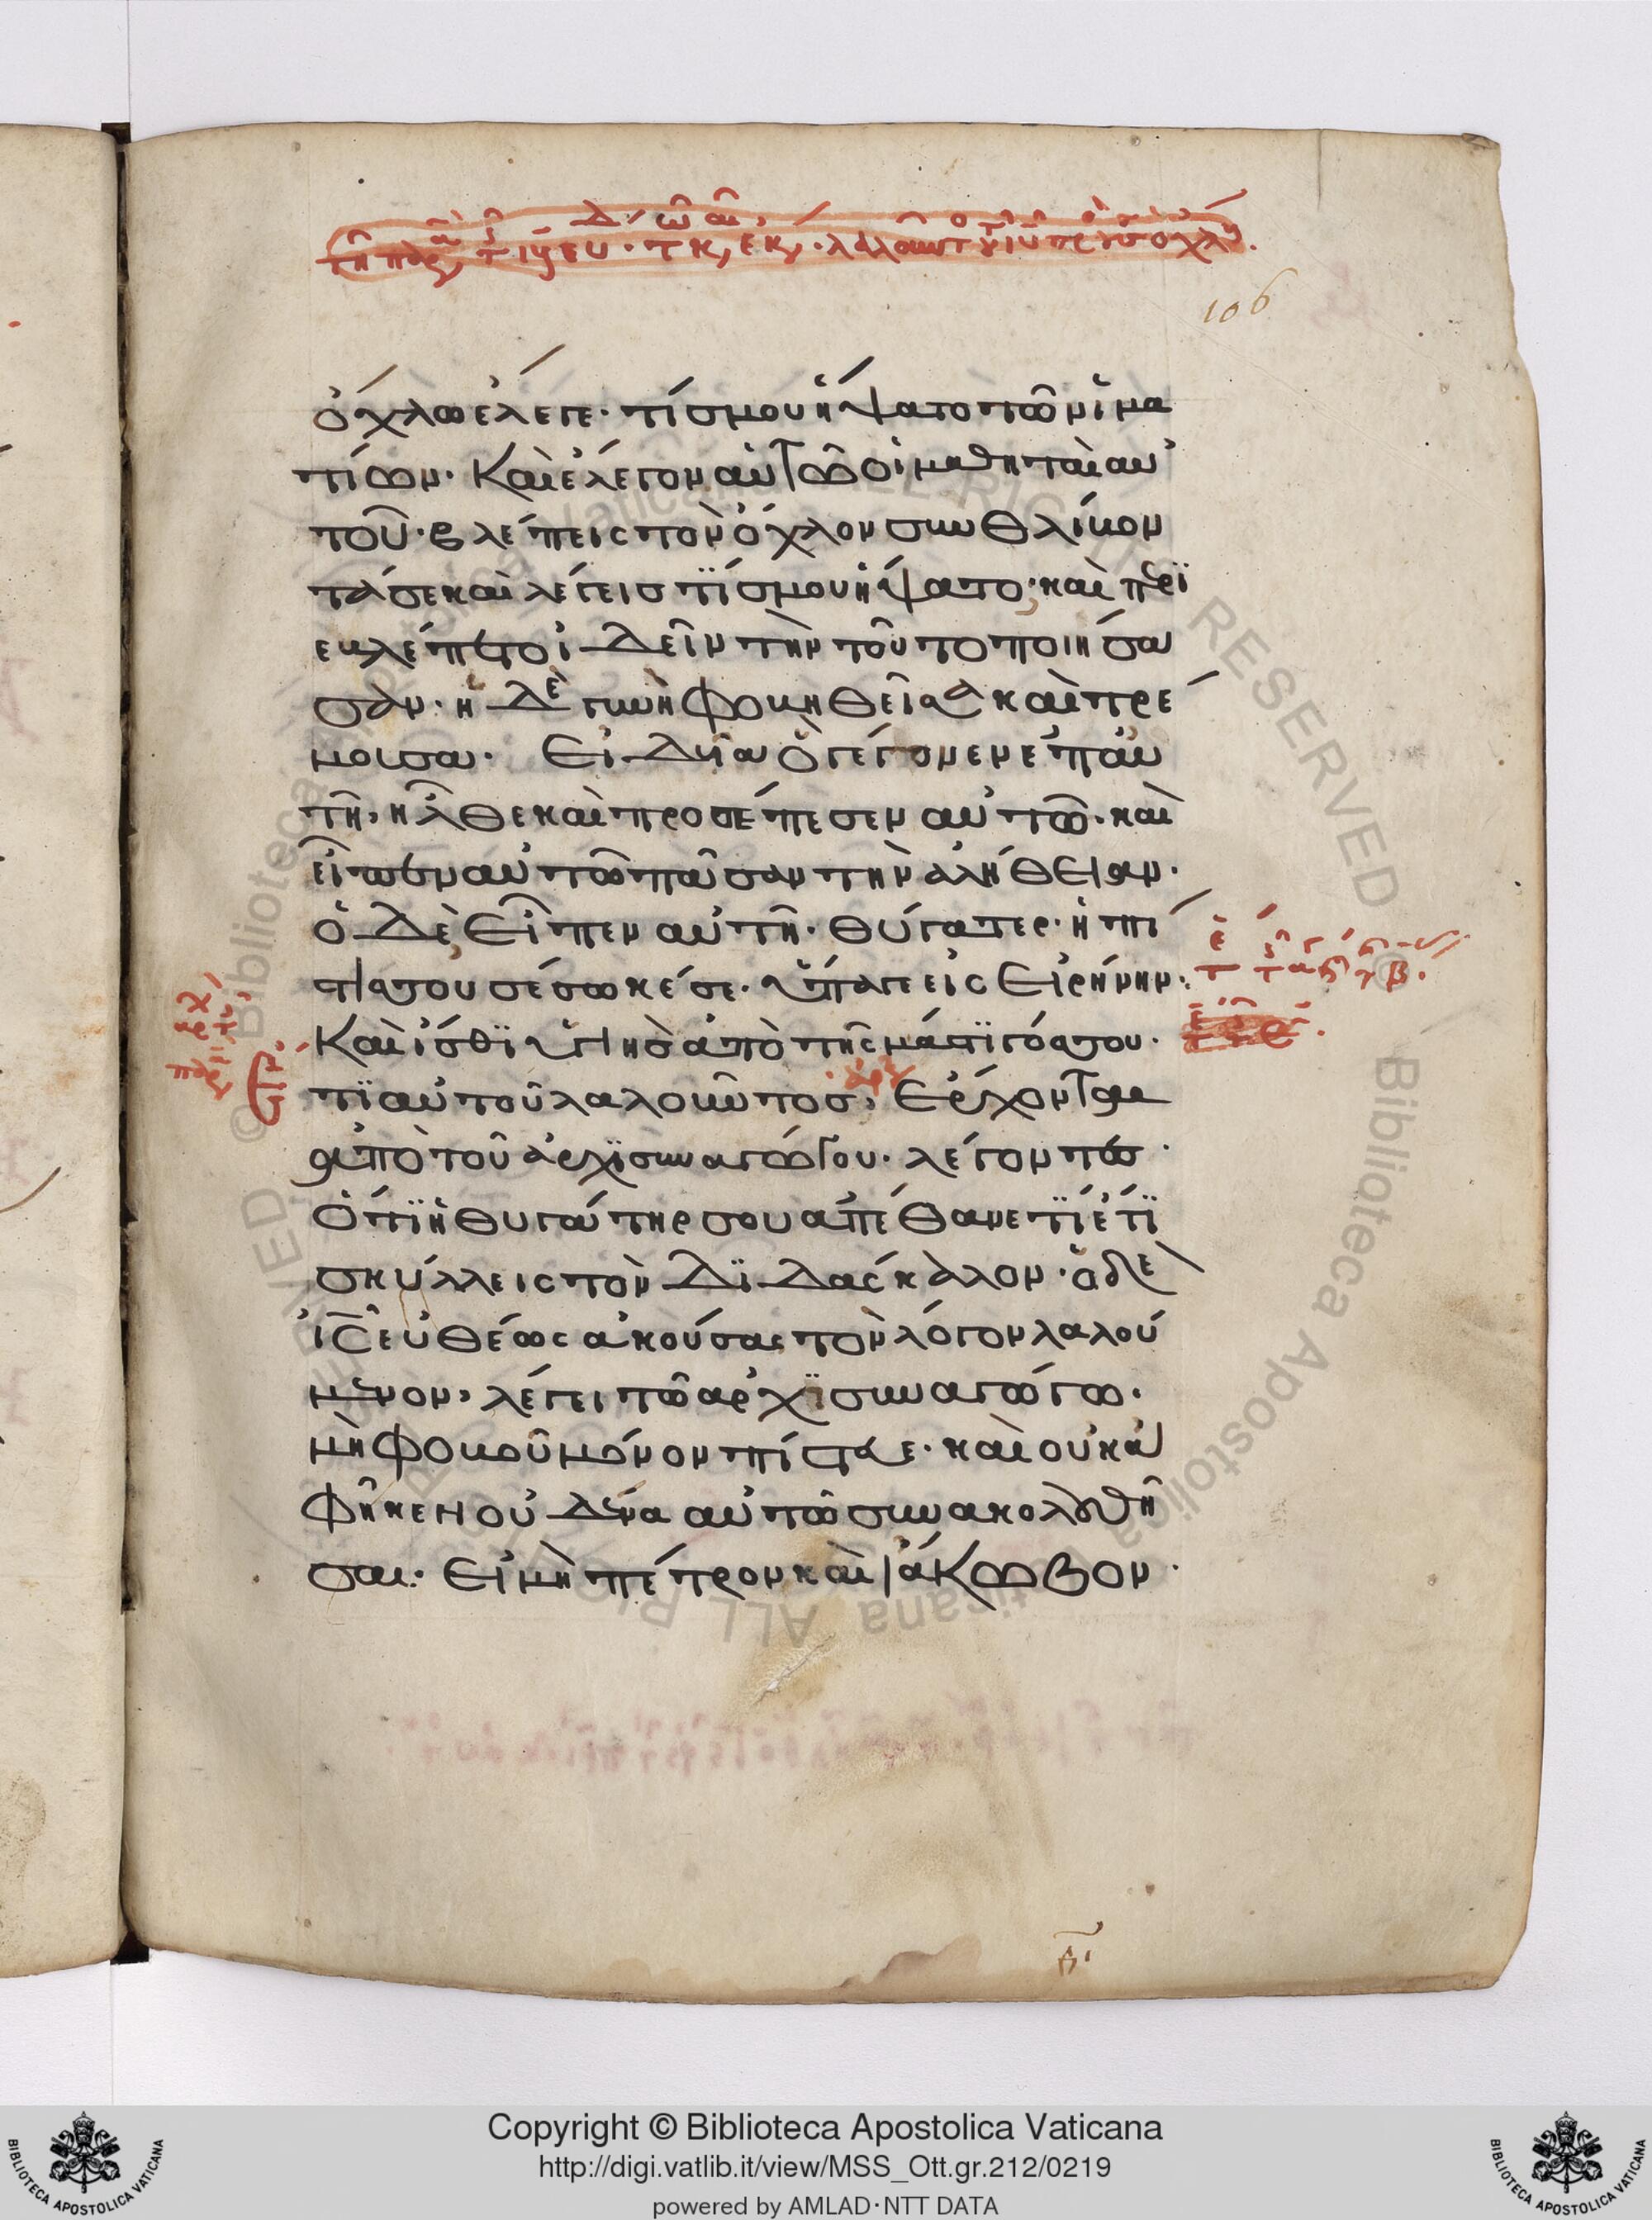 106
ὄχλω ἔλεγε· τίς μου ἥψατο τῶν ἱμα
τίων· Καὶ ἔλεγον αὐτῶ οἱ μαθηταὶ αὐ
τοῦ· βλέπεις τὸν ὄχλον συνθλίβον
τά σε καὶ λέγεις τίς μου ἥψατο· καὶ περϊ
εβλέπετο ἰδεῖν τὴν τοῦτο ποιήσα
σαν· ἡ δὲ γυνὴ φοβηθεῖσα καὶ τρέ
μουσα· Εἰδυῖα ὃ γέγονεν ἐπ' αὐ
τῆ, ἦλθε καὶ προσέπεσεν αὐτῶ· καὶ
εἶπεν αὐτῶ πᾶσαν τὴν ἀλήθειαν·
ὁ δὲ Εἶπεν αὐτῆ· θύγατερ· ἡ πί
στις σου σέσωκέ σε· ὕπαγε εἰς Εἰρήνην·
Καὶ ἴσθϊ ὑγιὴς ἀπὸ τῆς μάστϊγός σου·
ἔτϊ αὐτοῦ λαλοῦντος, Ἔρχονται
ἀπὸ τοῦ ἀρχϊσυναγώγου· λέγοντες·
Ὅτϊ ἡ θυγάτηρ σου ἀπέθανε τϊ ἔτϊ
σκύλλεις τὸν Δϊδάσκαλον· ὁ δὲ
ἰς εὐθέως ἀκούσας τὸν λόγον λαλού
μενον, λέγει τῶ ἀρχϊσυναγώγω·
μὴ φοβοῦ μόνον πίστευε· καὶ οὐκ ἀ
φῆκεν οὐδένα αὐτῶ συνακολουθῆ
σαι· Εἰ μὴ πέτρον καὶ Ἰάκωβον·
Copyright © Biblioteca Apostolica Vaticana
http://digi.vatlib.it/view/MSS_Ott.gr.212/0219
powered by AMLAD·NTT DATA
BIBLIOTECA APOSTOLICA VATICANA
BIBLIOTECA APOSTOLICA VATICANA